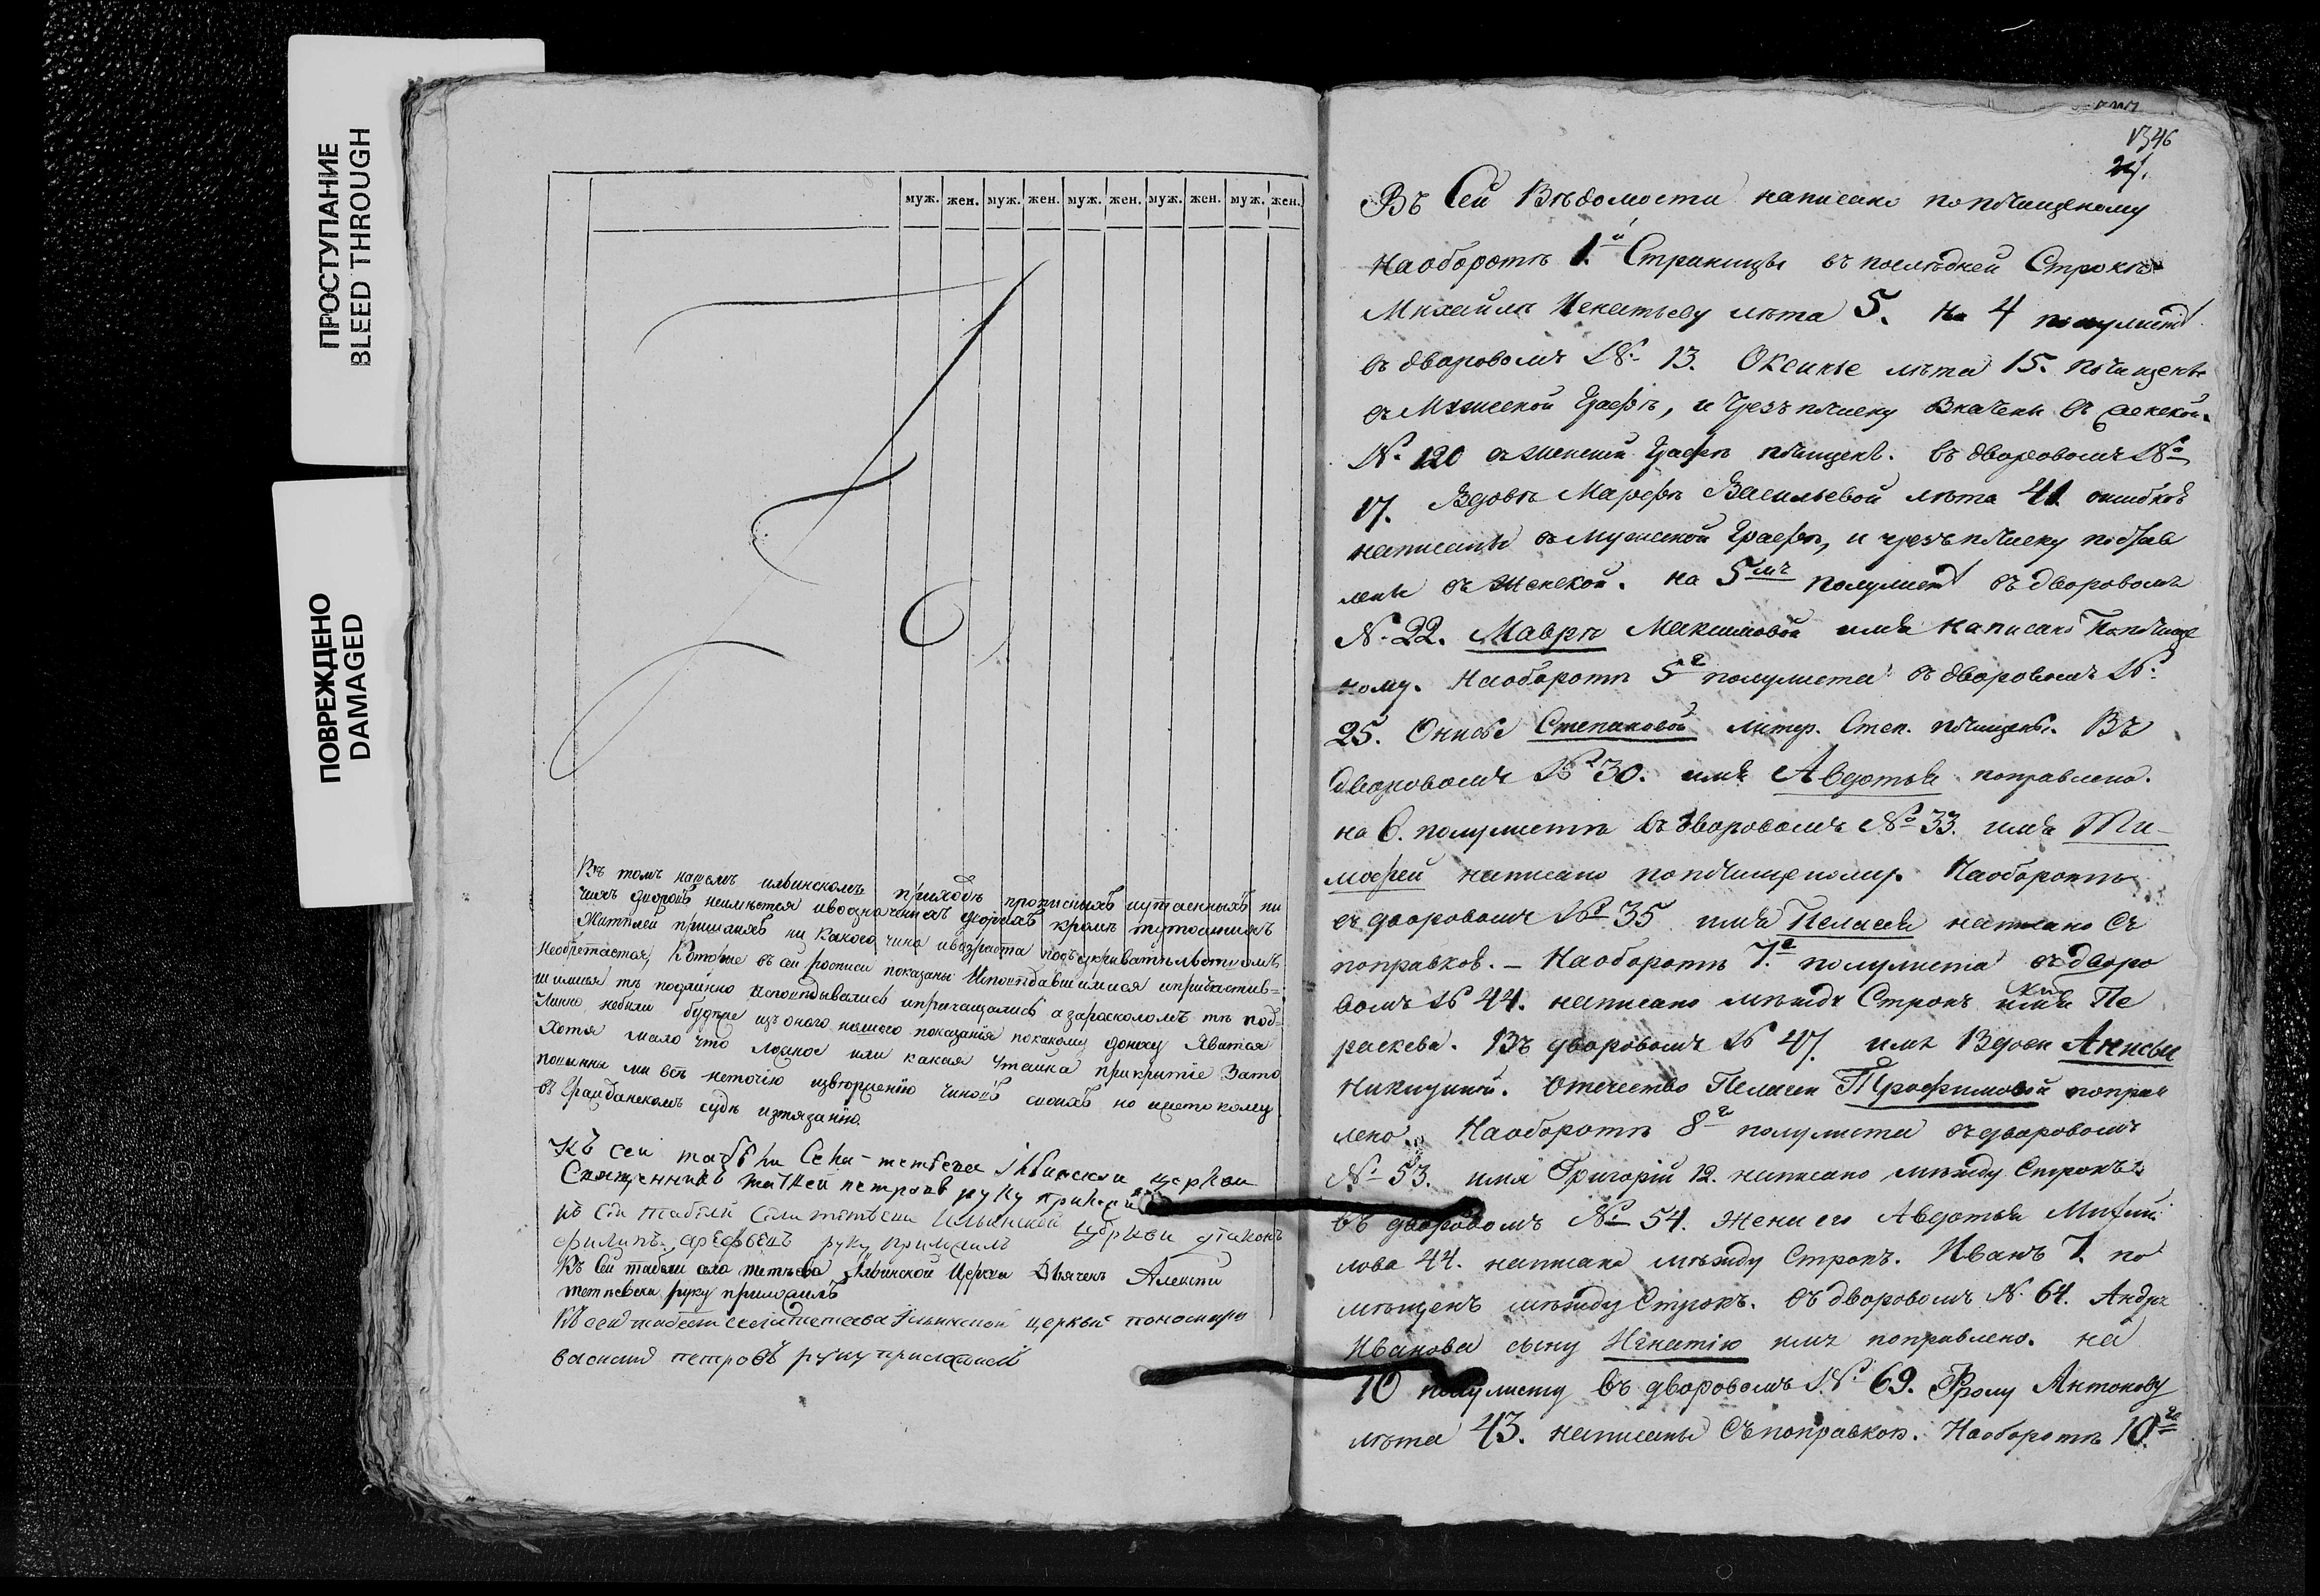 ПРОСТУПАНИЕ
BLEED THROUGH
ПОВРЕЖДЕНО
DAMAGED
муж. жен. муж. жен. муж. жен. муж. жен. муж. жен.
Въ томъ нашемъ ильинскомъ приходѣ прописныхъ иутаенныхъ ни
чьихъ дворовъ неимѣется ивоозначенныхъ дворахъ кромѣ тутошнихъ
Жителей пришлыхъ ни какого чина ивозраста подъукривательствомъ
необретается, Которые въ сей росписи показаны Исповѣдавшимися ипричастив=
шимися тѣ подлинно исповѣдывались ипричащались а зарасколомъ тѣ под=
линно небыли будеже изъ оного нашего показанія покакому доносу явится
хотя мало что ложное или какая утайка прикрытіе Зато
повинны мы всѣ неточію извержению чиновъ своихъ но ижестокому
въ Гражданскомъ судѣ изтязанію.
Къ сей табели Села тетвева Ильинской церкви
Священникъ матвей петровъ руку приложи
къ сей табели села тетвева Ильинской церкви диаконъ
филипъ арефьевъ руку приложилъ
Къ сей табели села тетвева Ильинской Церкви Дьячекъ Алексей
руку приложилъ
Къ сей табели села тетвева Ильинской церкви пономарь
василий петровъ руку приложилъ
1346
27.
Въ Сей Вѣдомости написано попочищеному
Наоборотѣ 1й Страницы въ послѣдней Строкѣ
Михайлѣ Игнатьеву лѣта 5. На 4 полулистѣ
въ дворовомъ № 13. Оксинье лѣта 15. почищены
въ Мужеской Графѣ, и чрезъ почиску въ женской.
№ 120 въ женской Графѣ почищенъ. въ дворовомъ №
17. Вдовѣ Марфѣ Васильевой лѣта 41 ошибкою
написаны въ Мужеской Графѣ, и чрезъ почиску постав
лены въ Женской. На 5мъ полулистѣ въ дворовомъ
№ 22. Маврѣ Максимовой имя написано Попочище
ному. Наоборотѣ 5го полулиста въ дворовомъ №
25. Степановой литер. Степ. почищены. Въ
дворовомъ № 30. имя Авдотья поправлено.
на 6. полулистѣ въ дворовомъ № 33. имя Ти-
мофей написано попочищеному. Наоборотѣ
въ дворовомъ № 35 имя Пелагея написано съ
поправкой. – Наоборотѣ 7го полулиста въ дворо
вомъ № 44. написано между Строкъ имя Па
раскева. Въ дворовомъ № 47. имя Вдовы Анисьи
Никитиной. отечество Пелагеи Трофимовой поправ
лено. Наоборотѣ 8го полулиста въ дворовомъ
№ 53. имя Григорій 12. написано между Строкъ
въ дворовомъ № 54. жена его Авдотья Михай
лова 44. написана между Строкъ. Иванъ 7. по
мѣщенъ между Строкъ. въ дворовомъ № 64. Андрея
Иванова сыну Игнатію имя поправлено. на
10 полулисту въ дворовомъ № 69. Фролу Антонову
лѣта 43. написаны съ поправкою. Наоборотѣ 10го